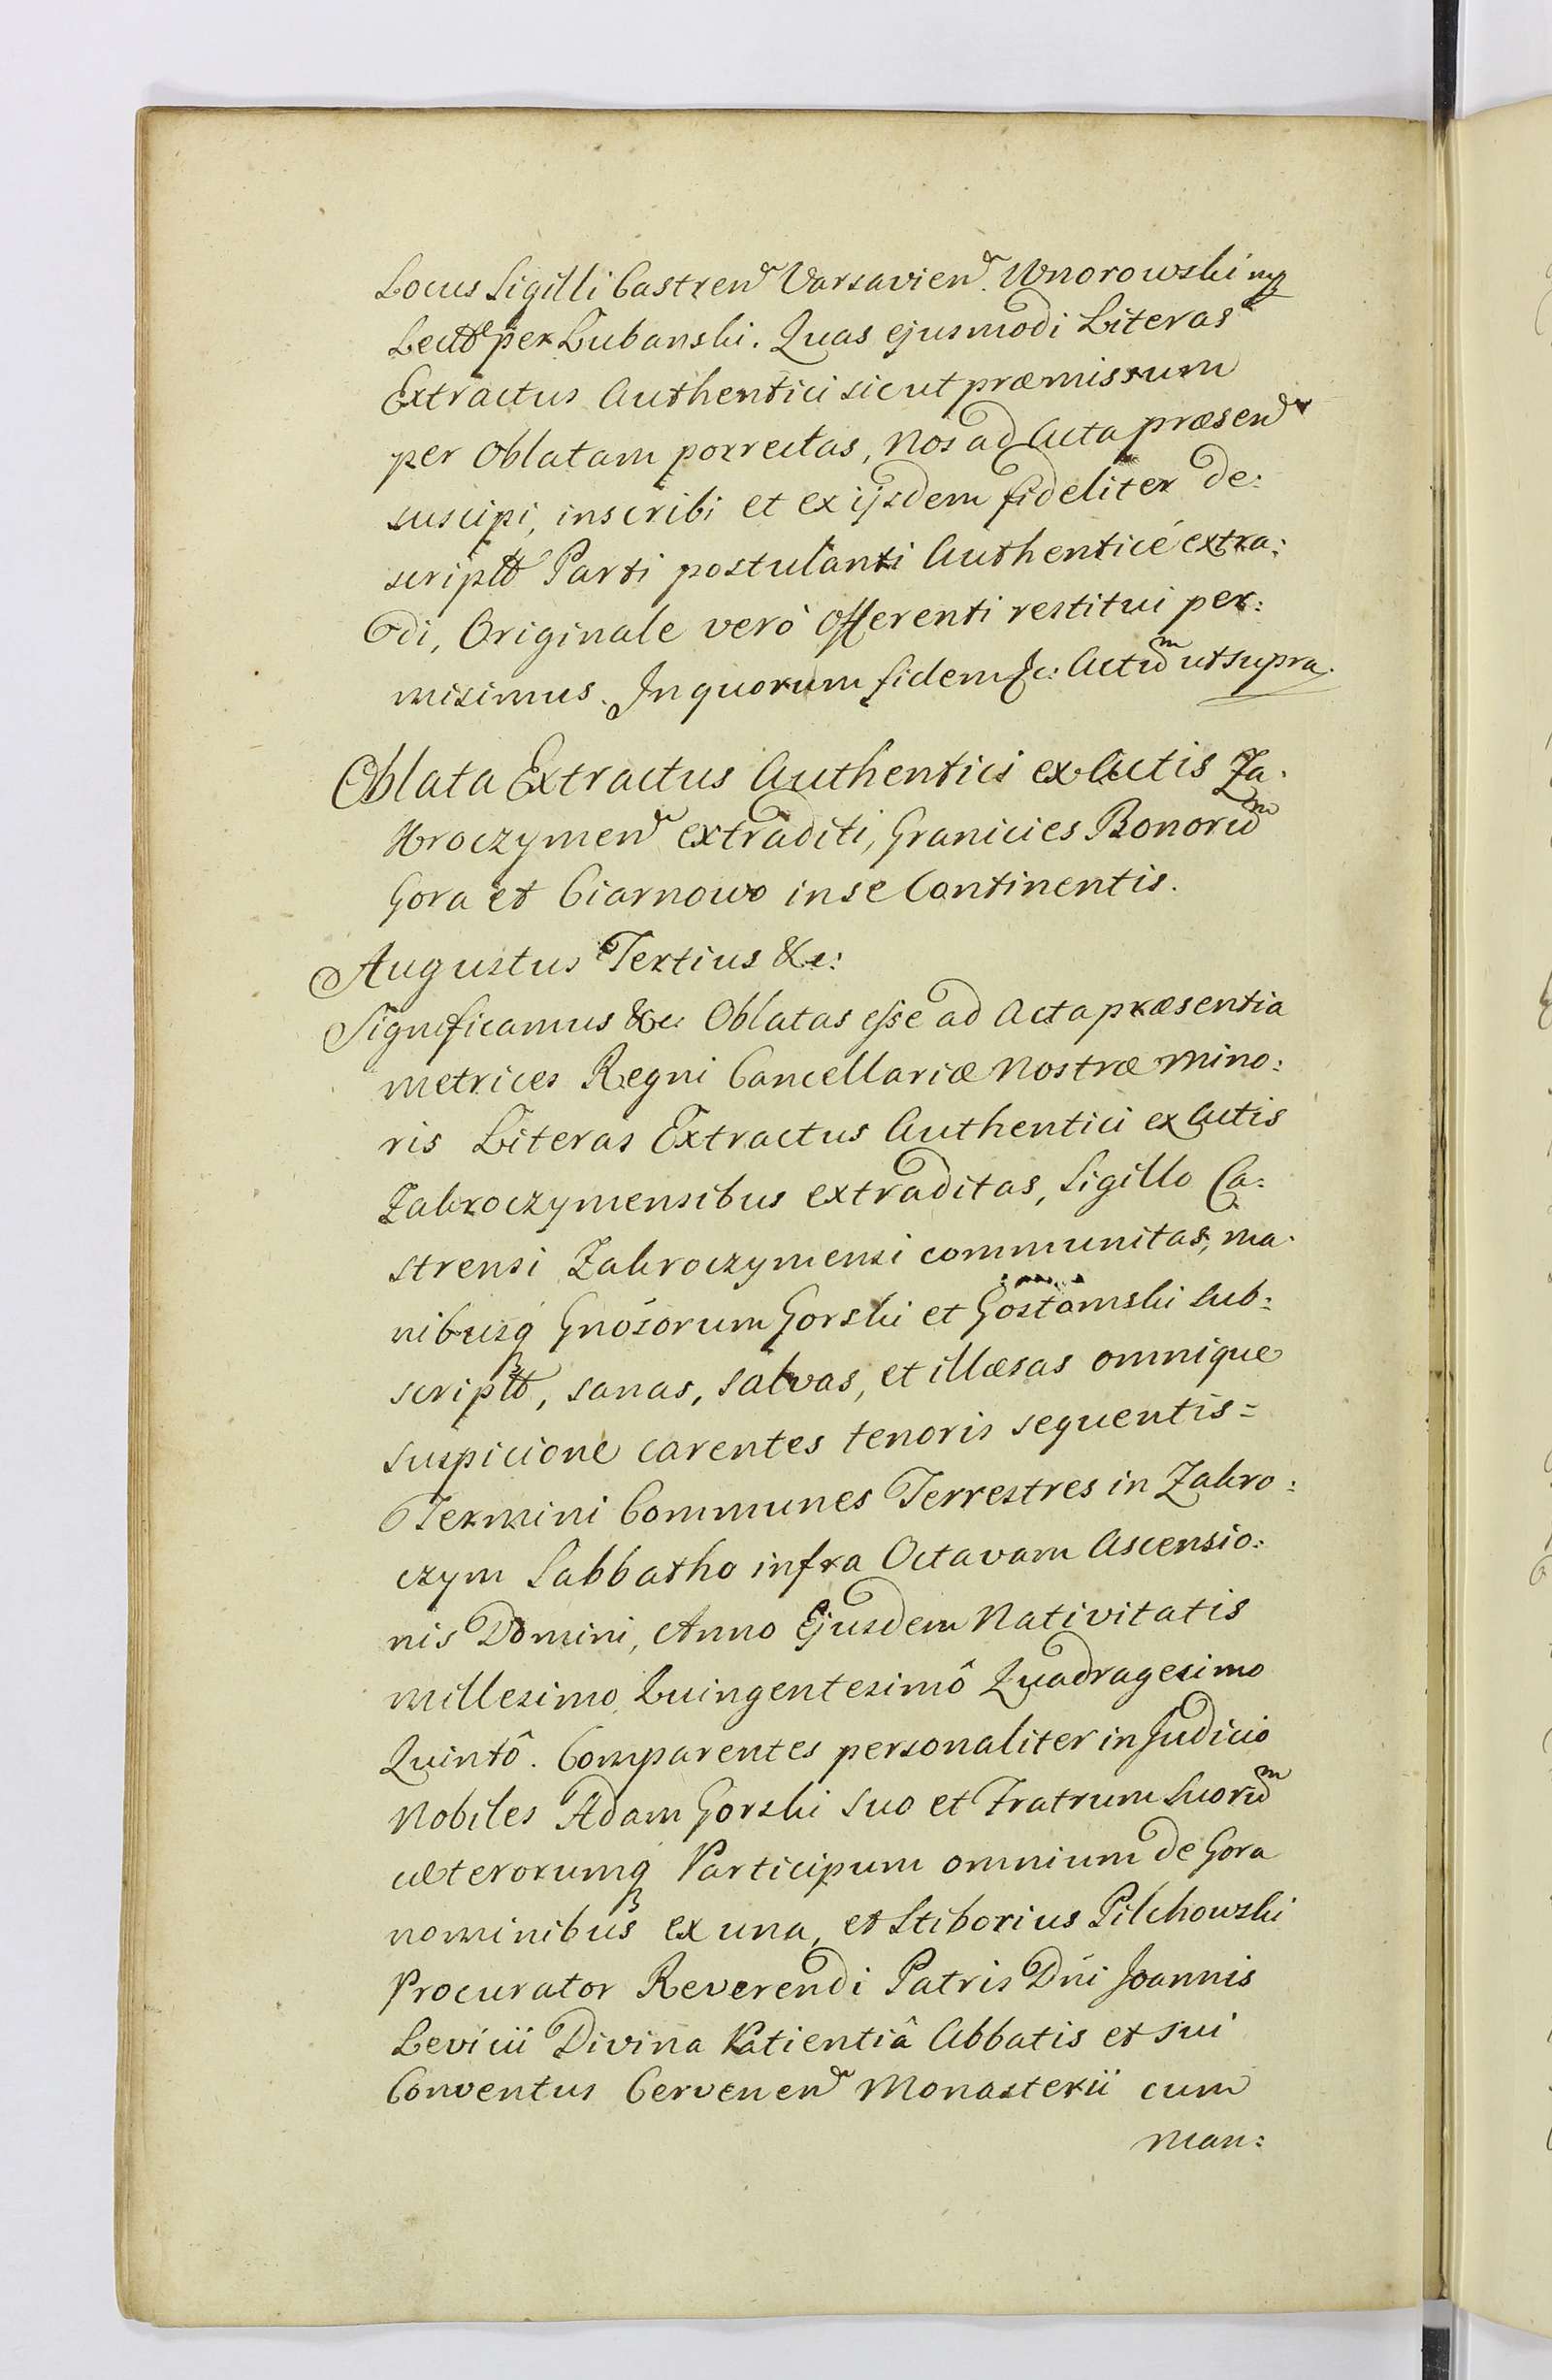 Locus Sigilli Castren Varsavien. Wnorowski mp
Lectt per Lubanski. Quas ejusmodi Literas
Extractus Authentici sicut præmissum
per Oblatam porrectas, Nos ad Acta præsen
suscipi, inscribi et ex ijsdem fideliter de:
scriptt Parti postulanti Authenticé extra:
di, Originale verò Offerenti restitui per:
misimus. In quorum fidem &c: Actum ut supra.
Oblata Extractus Authentici ex Actis Za:
kroczymen extraditi, Granicies Bonorum
Gora et Ciarnowo in se Continentis.
Augustus Tertius &c:
Significamus &c: Oblatas esse ad Acta præsentia
metrices Regni Cancellariæ Nostræ Mino:
ris Literas Extractus Authentici ex Actis
Zakroczymensibus extraditas, Sigillo Ca:
strensi Zakroczymensi communitas, ma:
nibusq Gnósorum Gorski et Gostomski sub:
scriptt, sanas, salvas, et illæsas omnique
suspicione carentes tenoris sequentis =
Termini Communes Terrestres in Zakro:
czym Sabbatho infra Octavam Ascensio:
nis Domini, Anno Ejusdem Nativitatis
Millesimo Quingentesimô Quadragesimo
Quintô. Comparentes personaliter in Judicio
Nobiles Adam Gorski suo et Fratrum suorum
cæterorumq Participum omnium de Gora
nominibus ex una, et Stiborius Pilchowski
Procurator Reverendi Patris Dńi Joannis
Levicii Divina Patientiâ Abbatis et sui
Conventus Cervenen Monasterii cum
man: